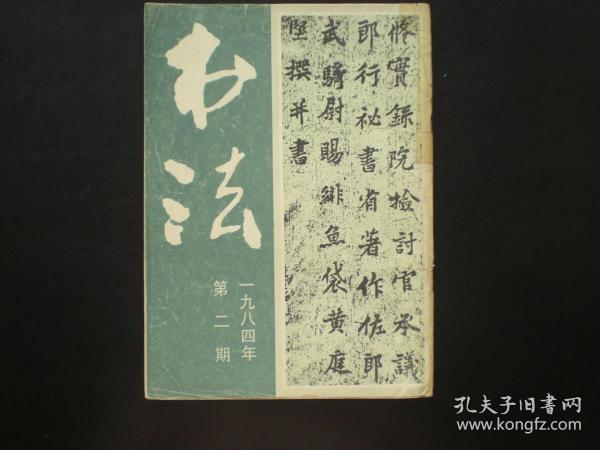 书法
一九八四年
第二期
修實錄院檢討官承議
郎行祕書省著作佐郎
武騎尉賜緋魚袋黄庭
堅撰并書
孔夫子旧書网
www.kongfz.com